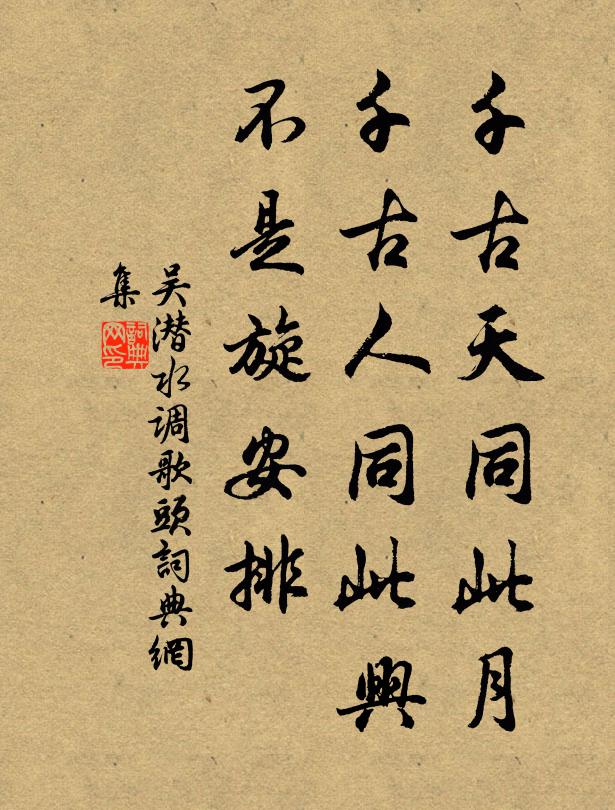 千古天同此月
千古人同此興
不是旋安排
吴潜水调歌頭詞典網
集
詞典
网印